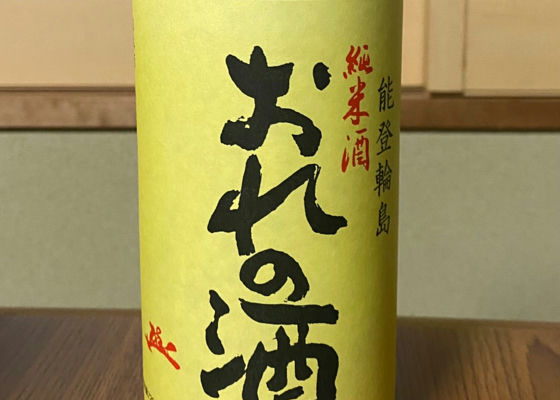 能登輪島
純米酒
おれの酒